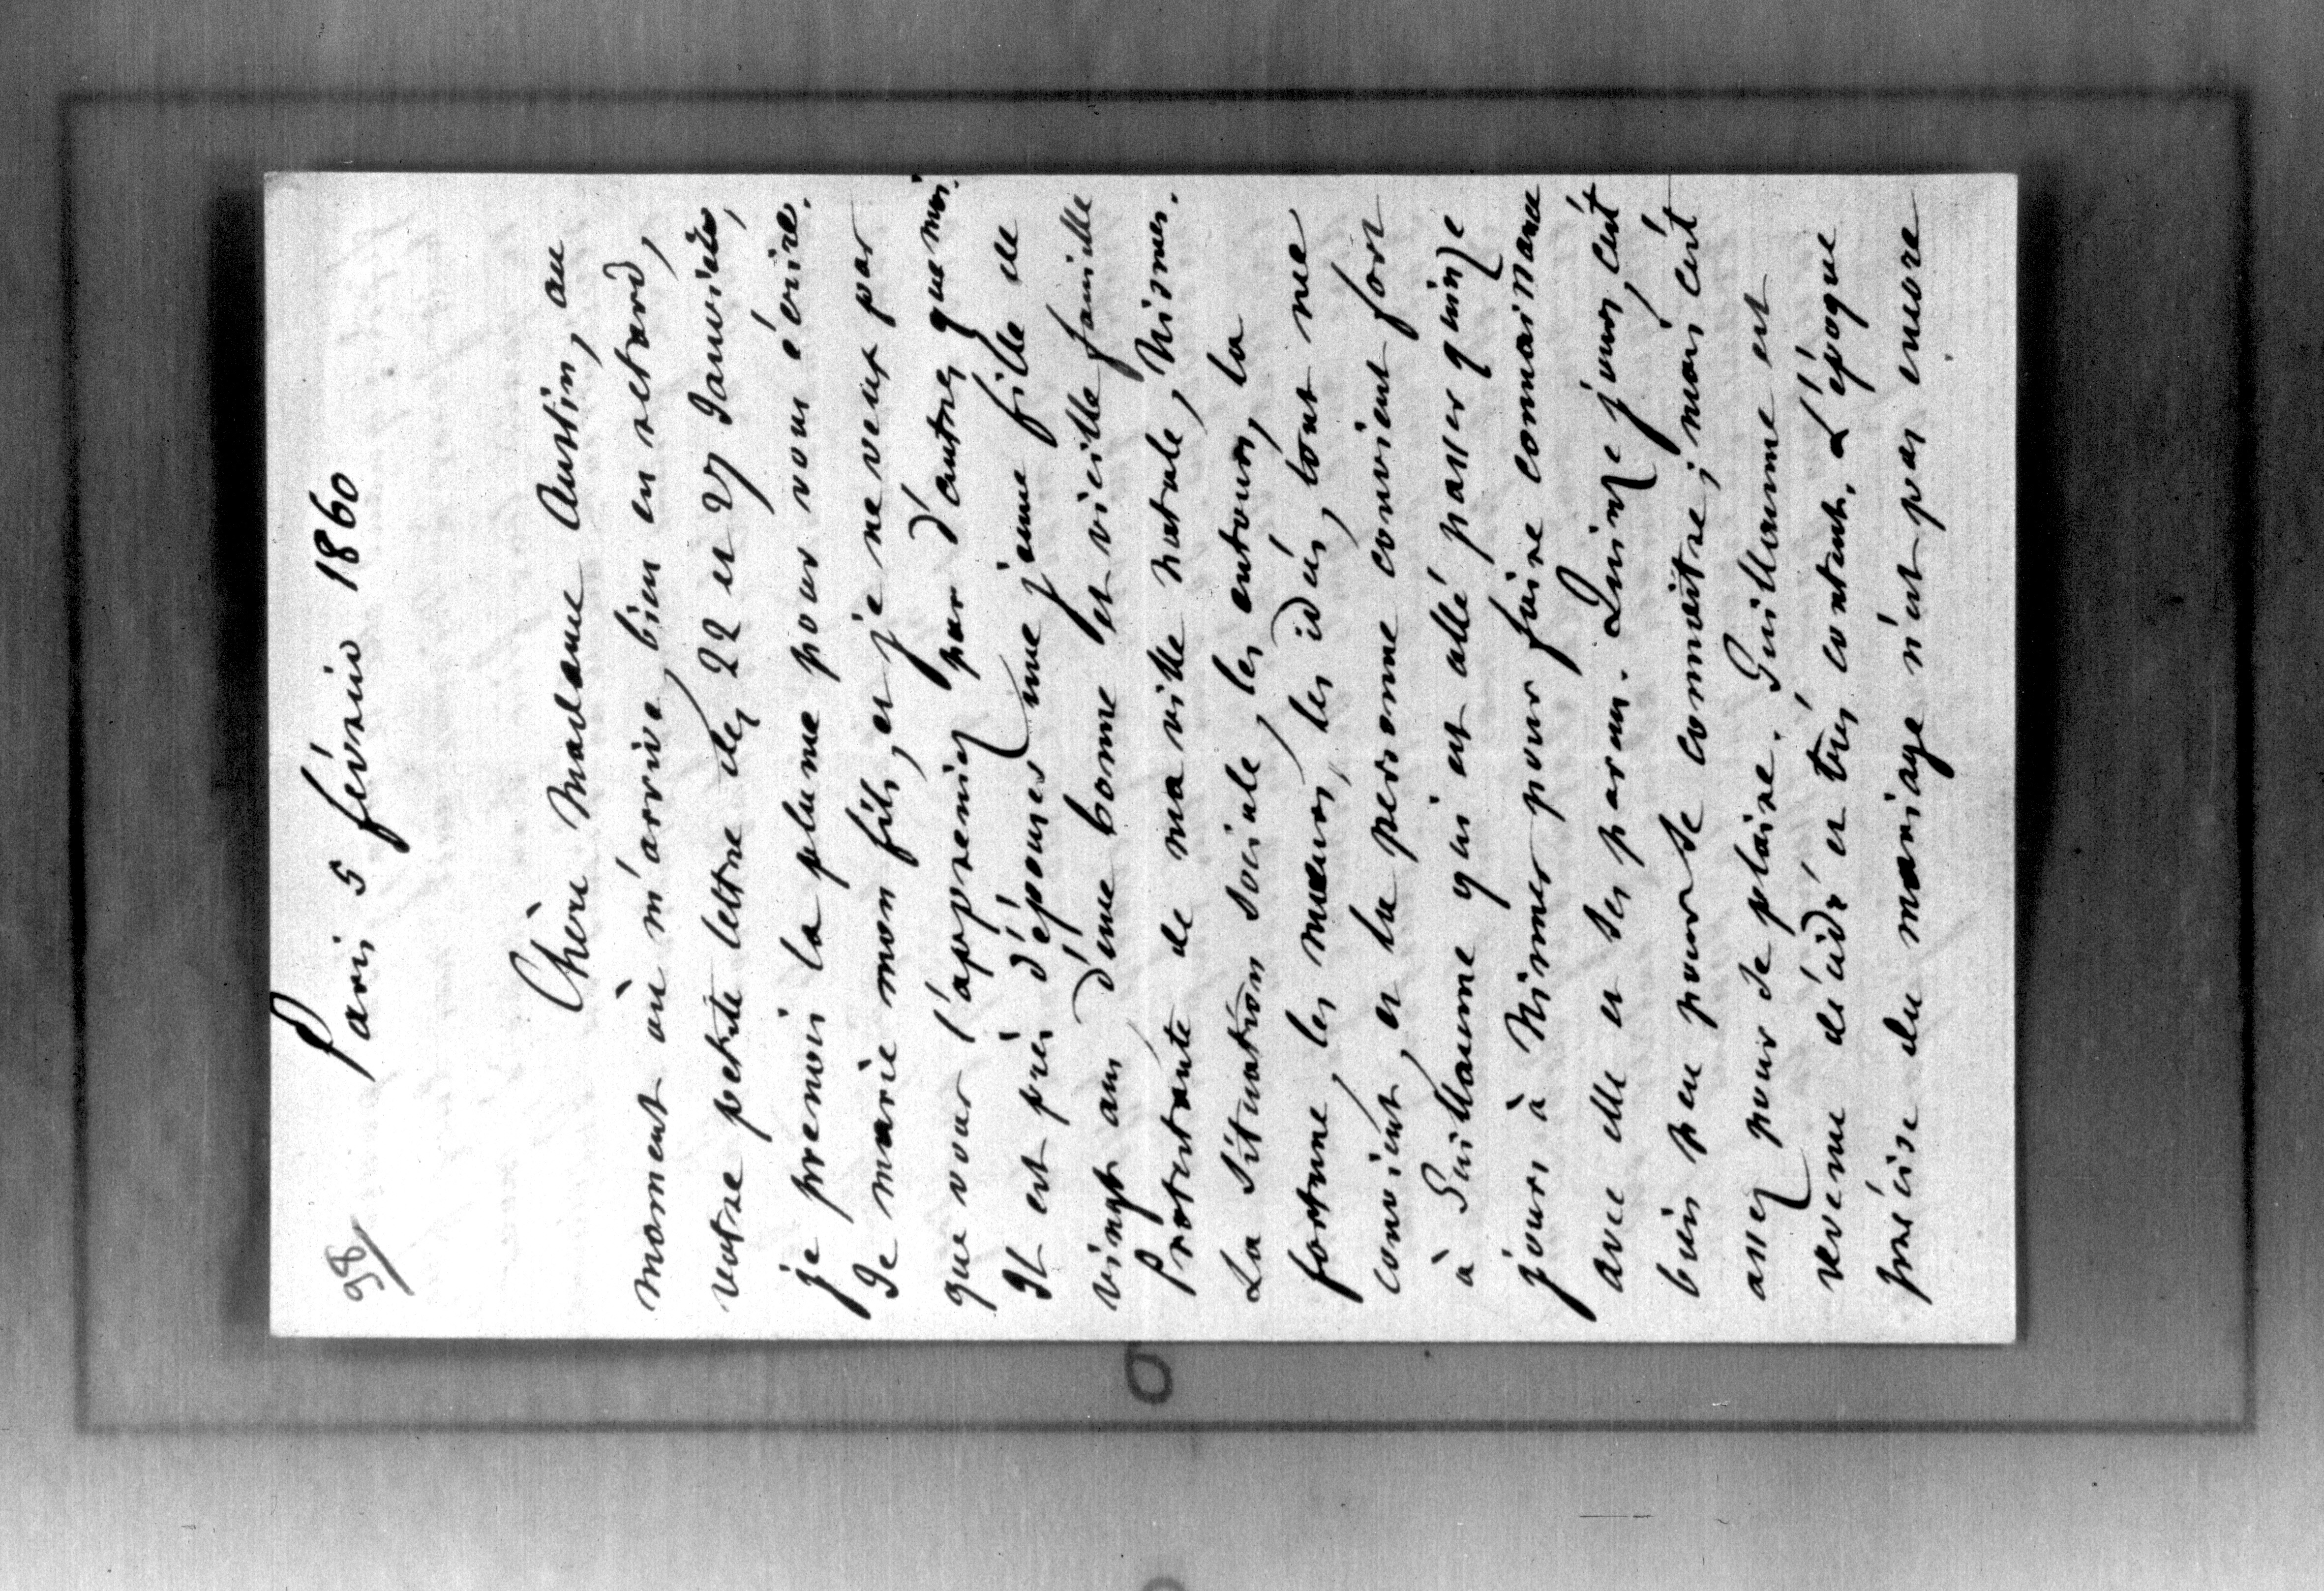 98/
Paris 5 février 1860
Chère Madame Austin, au
moment où m'arrive, bien en retard,
votre petite lettre des 22 et 27 Janvier,
je prenois la plume pour vous écrire.
Je marie mon fils, et je ne veux pas
que vous l'appreniez par d'autres que moi.
Il est près d'épouser une jeune fille de
vingt ans d'une bonne et vieille famille
Protestante de ma ville natale, Nismes.
La situation sociale, les entours, la
fortune, les mœurs, les idées, tout me
convient, et la personne convient fort
à Guillaume qui est allé passer quinze
jours à Nismes pour faire connaissance
avec elle et ses parens. Quinze jours, c'est
bien peu pour se connoître; mais c'est
assez pour se plaire. Guillaume est
revenu décidé et très content. L'époque
précise du mariage n'est pas encore